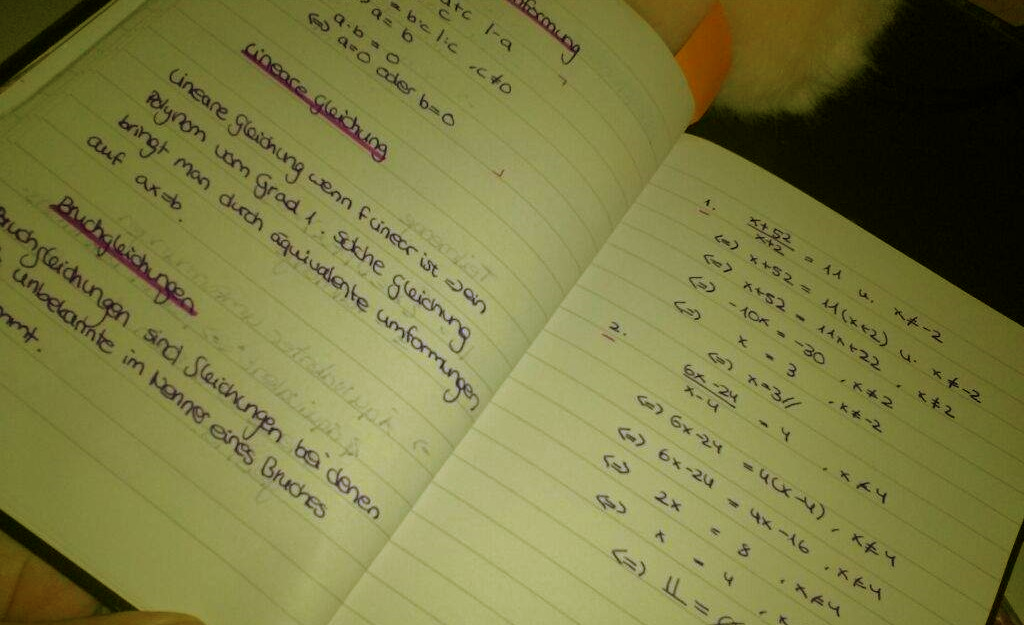 umformung
a+c | -a
= c
= b·c |:c , c≠0
a = b
a·b = 0
(=) a=0 oder b=0
Lineare gleichung
Lineare gleichung wenn f linear ist → ein
Polynom vom Grad 1. Solche gleichung
bringt man durch äquivalente umformungen
auf ax=b.
Bruchgleichungen
Bruchgleichungen sind gleichungen bei denen
unbekannte im Nenner eines Bruches
ommt.
1. x+52 / x+2 = 11 u. x≠-2
(=) x+52 = 11(x+2) u. x≠-2
(=) x+52 = 11x+22 , x≠2
(=) -10x = -30 , x≠2
(=) x = 3 , x≠-2
(=) x=3//
2. 6x-24 / x-4 = 4 , x≠4
(=) 6x-24 = 4(x-4) , x≠4
(=) 6x-24 = 4x-16 , x≠4
(=) 2x = 8 , x≠4
(=) x = 4 , x
(=) 𝕃 =